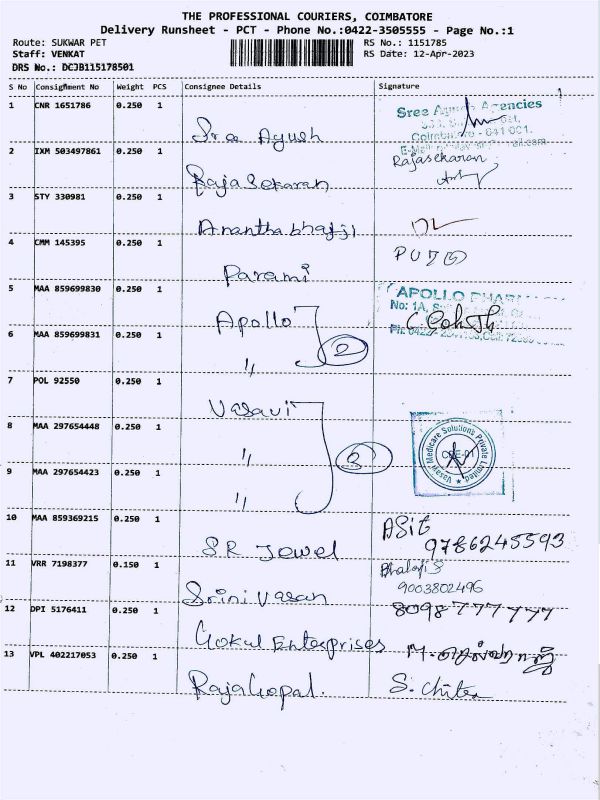 THE PROFESSIONAL COURIERS, COIMBATORE
Delivery Runsheet - PCT - Phone No.:0422-3505555 - Page No.:1
Route: SUKWAR PET RS No.: 1151785
Staff: VENKAT RS Date: 12-Apr-2023
DRS No.: DCJB115178501
S No Consignment No Weight PCS Consignee Details Signature
1 CNR 1651786 0.250 1 Sree Ayush
Sree Agencies
Coimbatore - 641 001.
2 IXM 503497861 0.250 1 Raja Sekaran Rajasekaran
3 STY 330981 0.250 1 Anantha bhafji
4 CMM 145395 0.250 1 Parami
5 MAA 859699830 0.250 1 Apollo
APOLLO PHAR
No: 1A,
6 MAA 859699831 0.250 1 " 2
7 POL 92550 0.250 1 Vasavi
8 MAA 297654448 0.250 1 "
Vasavi Medicare Solutions Private Limited
CBE-01
9 MAA 297654423 0.250 1 " 3
10 MAA 859369215 0.150 1 SR Jewel Asit
9786245593
11 VRR 7198377 0.250 1 Srinivasan Bhalaji S
9003802496
12 DPI 5176411 0.250 1 Gokul Enterprises 8098777777
13 VPL 402217053 0.250 1 RajaGopal. S. Chitra